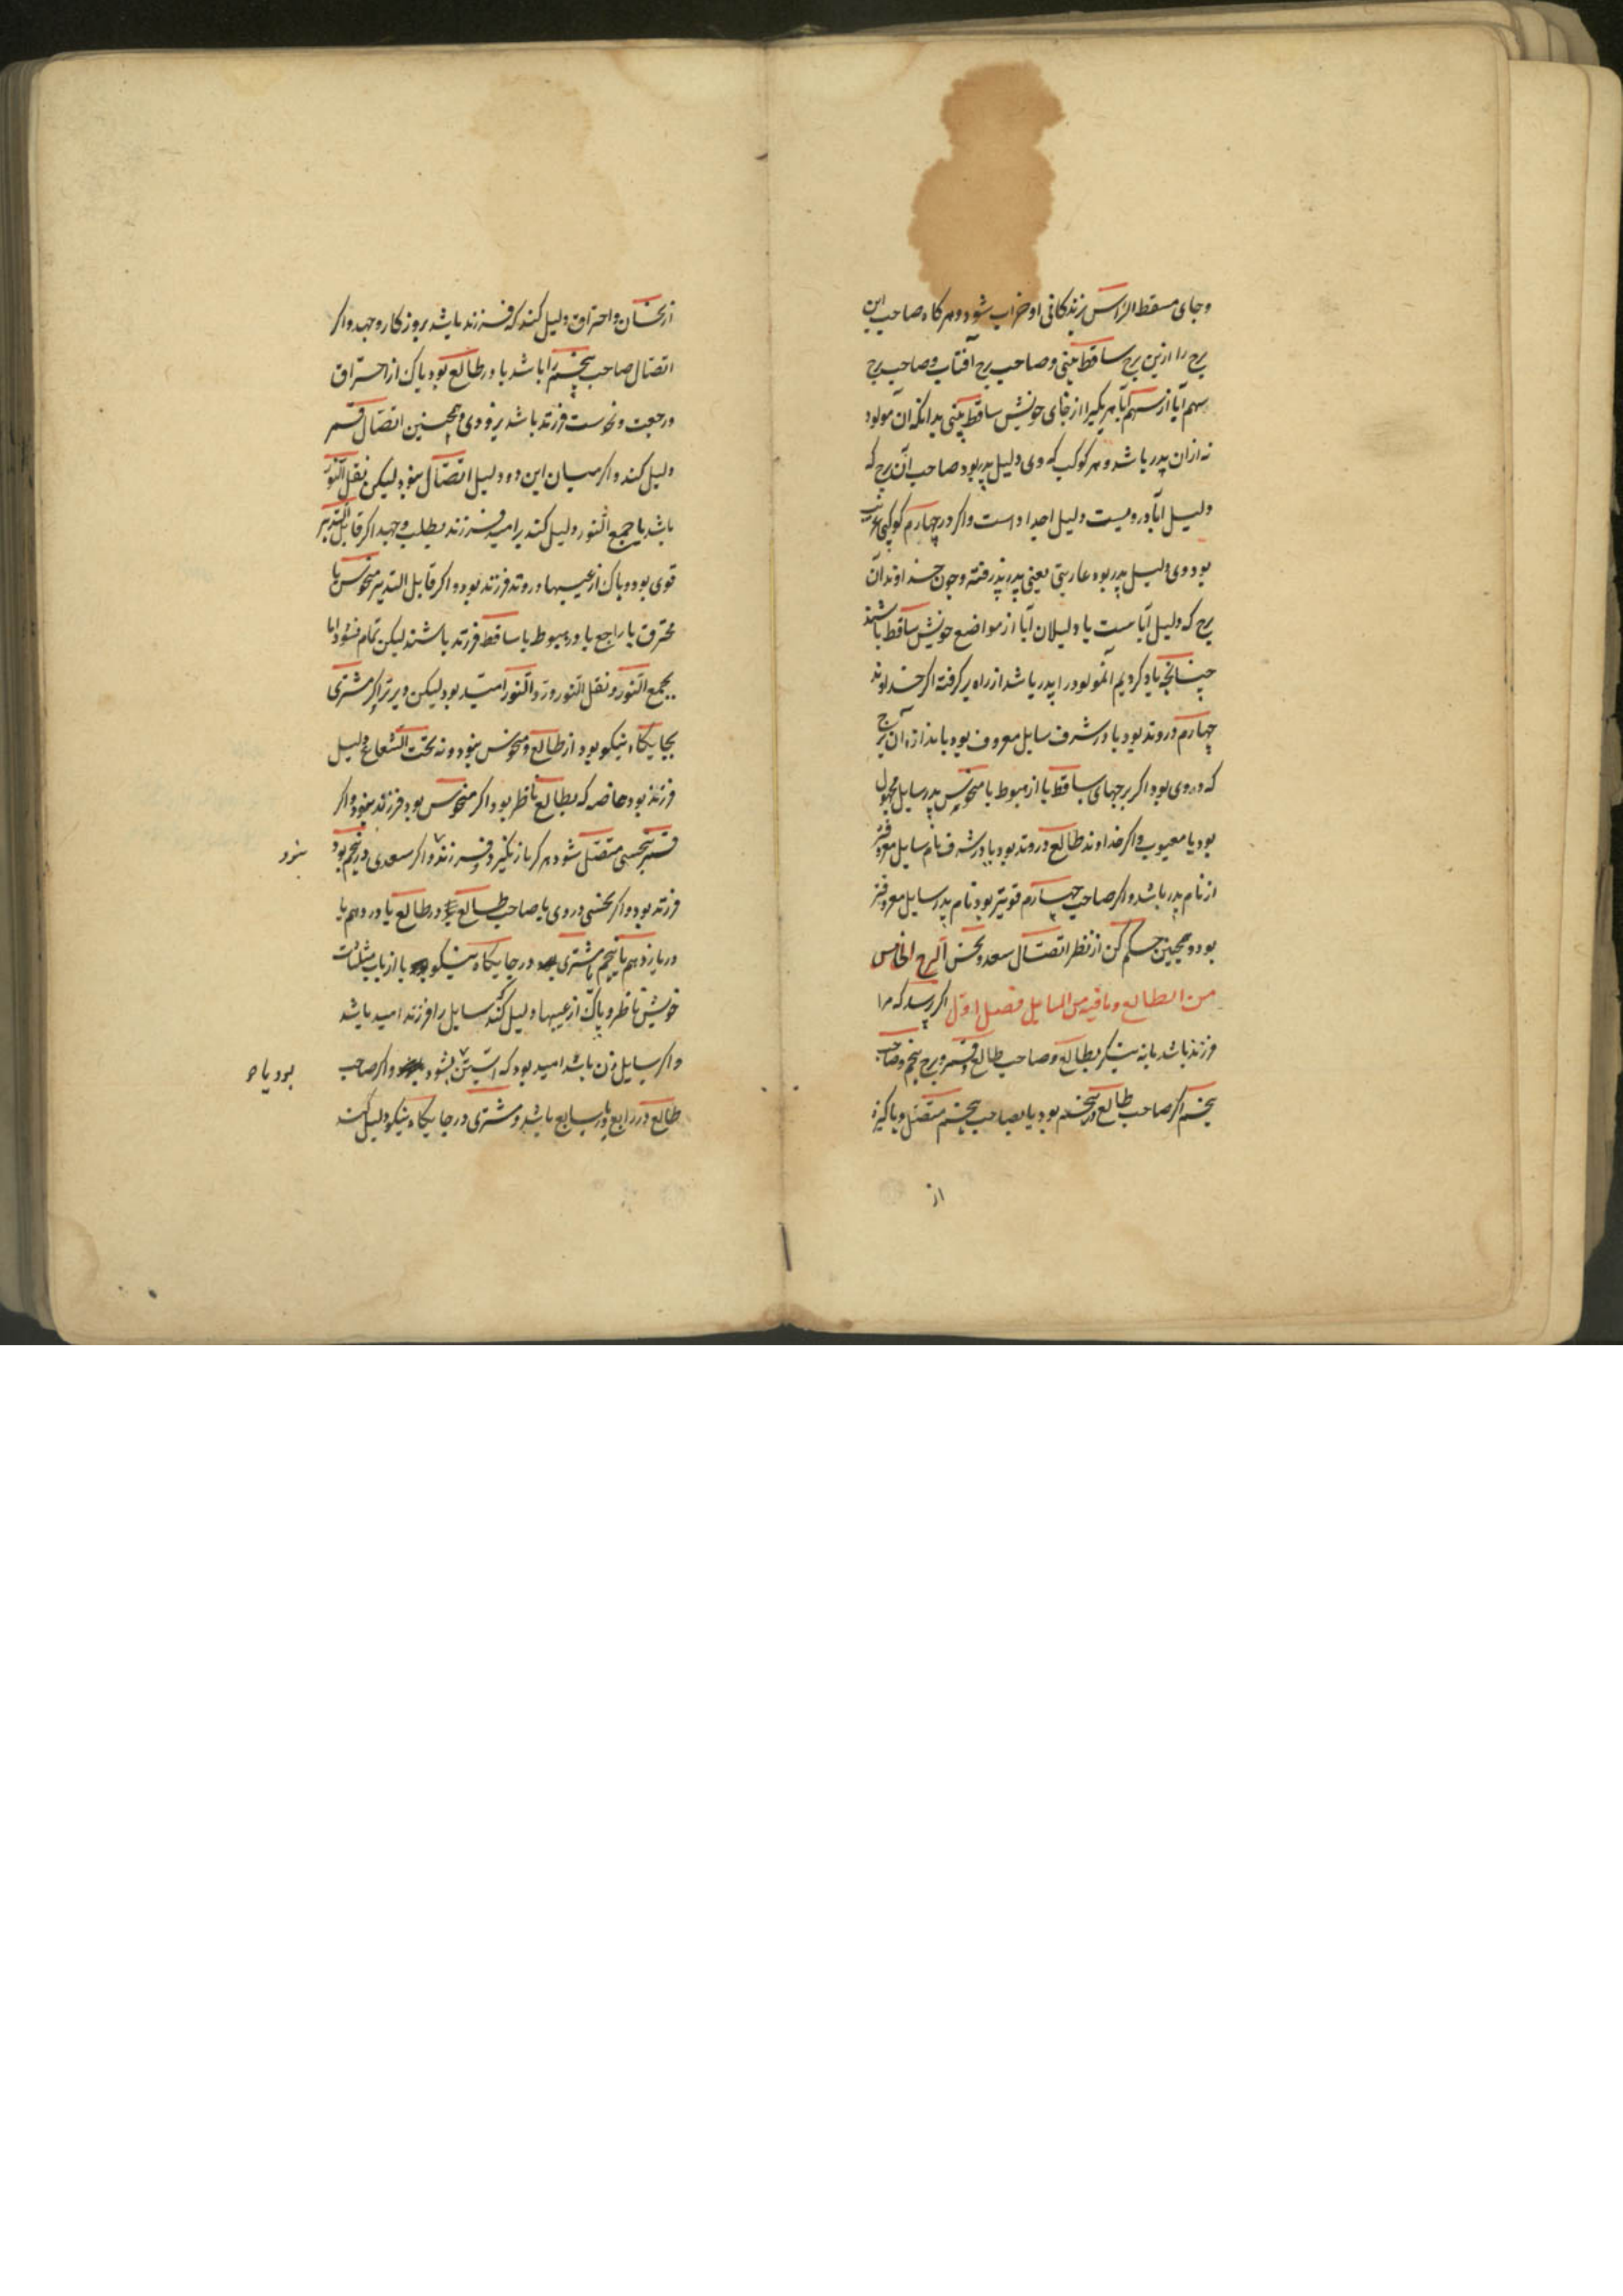 وجای مسقط الرّاس زندکانی او خراب شود و هرکاه صاحب این
برج را ازین برج ساقط بینی و صاحب برج آفتاب و صاحب برج
سهم آبا از سهم آبا هر یکیرا از جای خویش ساقط بینی بدانکه آن مولود
نه ازان پدر باشد و هر کوکب که وی دلیل پدر بود صاحب آن برج که
دلیل آبا دروست دلیل اجداد است واکر در چهارم کوکبی غریب
بود وی دلیل پدر بود عاریتی یعنی پدر پذرفته و چون خداوندان
برج که دلیل آباست یا دلیلان آبا از مواضع خویش ساقط باشند
چنانچه یاد کردیم آنمولود را پدر باشد از راه برکرفته اکر خداوند
چهارم در وتد بود یا در شرف سایل معروف بود باندازه آن برج
که دروی بود اکر برجهای ساقط یا از هبوط یا منحوس پدر سایل مجهول
بود یا معیوب واکر خداوند طالع در وتد بود یا در شرف نام سایل معروفتر
از نام پدر باشد واکر صاحب چهارم قویتر بود نام پدر سایل معروفتر
بود و همچنین حکم کن از نظر اتصال سعد و نحس البرج الخامس
من الطالع و مافیه من المسایل فصل اوّل اکر پرسد که مرا
فرزند باشد یا نه بنکر بطالع و صاحب طالع و قمر و برج پنجم و صاحب
پنجم اکر صاحب طالع در پنجم بود یا بصاحب پنجم متصل و پاکیزه
از
از نحسان و احتراق دلیل کند که فرزند باشد بروزکار و جهد واکر
اتصال صاحب پنجم را باشد یا در طالع بود پاک از احتراق
و رجعت و نحوست فرزند باشد بزودی و همچنین اتصال قمر
دلیل کند واکر میان این دو دلیل اتصال نبود لیکن نقل النور
باشد یا جمع النور دلیل کند بر امید فرزند بطلب و جهد اکر قابل التدبیر
قوی بود و پاک از عیبها و در وتد فرزند بود واکر قابل التدبیر منحوس یا
محترق یا راجع یا در هبوط یا ساقط فرزند باشند لیکن تمام نشود اما
بجمع النور و نقل النور و ردّ النور امید بود لیکن دیرتر اکر مشتری
بجایکاه نیکو بود از طالع و منحوس نبود و نه تحت الشعاع دلیل
فرزند بود خاصه که بطالع ناظر بود اکر منحوس بود فرزند نبود واکر
قمر بنحسی متصل شود هرکز باز نکیرد فرزند واکر سعدی در پنجم بود
نبرد
فرزند بود واکر نحسی دروی یا صاحب طالع در طالع یا در دهم یا
در یازدهم یا پنجم یا مشتری در جایکاه نیکو یا از باب مثلثات
خویش ناظر و پاک از عیبها دلیل کند سایل را فرزند امید باشد
واکر سایل زن باشد امید بود که آبستن بشود واکر صاحب
بود یا
طالع در رابع یا در سابع باشد و مشتری در جایکاه نیکو دلیل کند